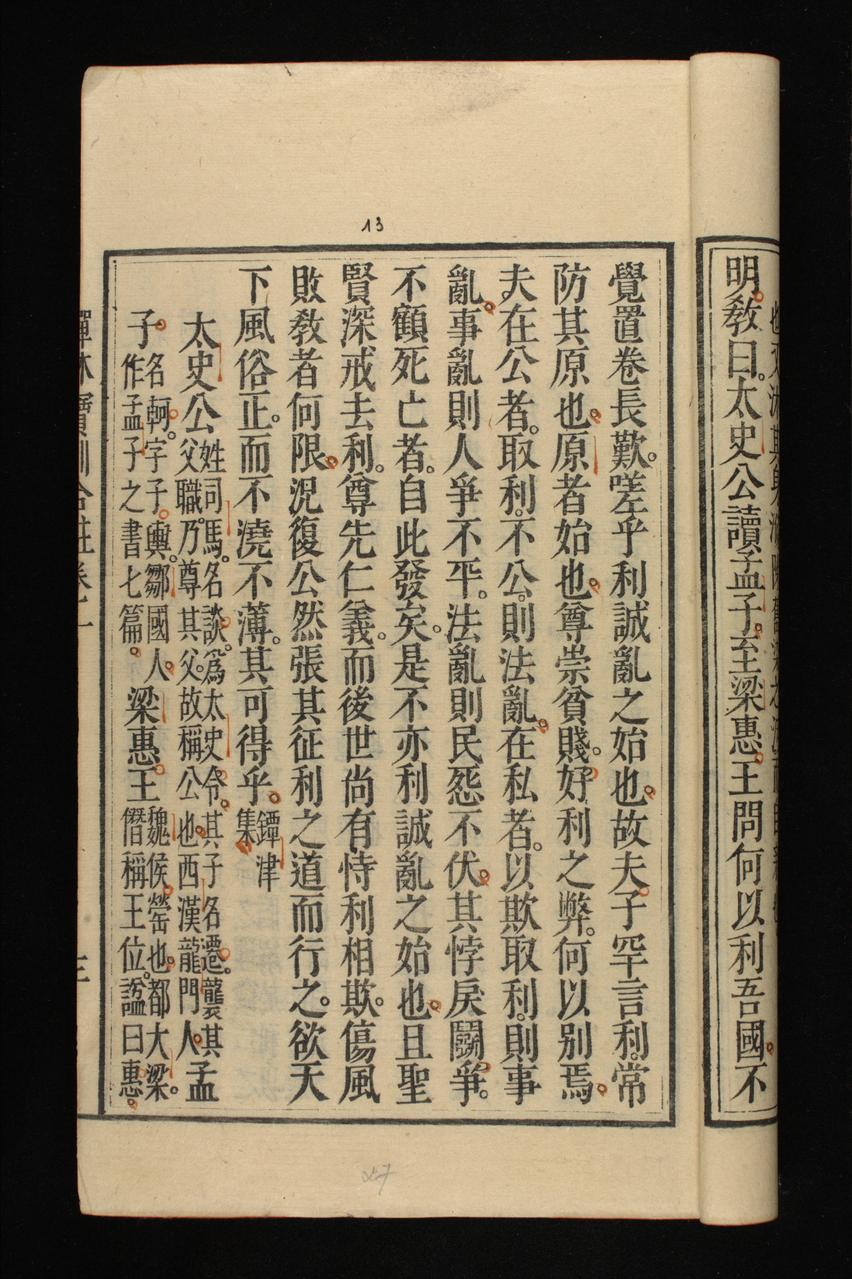 明教曰。太史公讀孟子。至梁惠王問何以利吾國。不
覺置卷長歎。嗟乎利誠亂之始也。故夫子罕言利。常
防其原也。原者始也。尊崇貧賤。好利之弊。何以別焉。
夫在公者。取利。不公。則法亂。在私者。以欺取利。則事
亂。事亂則人爭不平。法亂則民怨不伏。其悖戾鬪爭。
不顧死亡者。自此發矣。是不亦利誠亂之始也。且聖
賢深戒去利。尊先仁義。而後世尚有恃利相欺。傷風
敗教者何限。況復公然張其征利之道而行之。欲天
下風俗正。而不澆不薄。其可得乎。鐔津集
太史公姓司馬。名談。為太史令。其子名遷。襲其父職。乃尊其父。故稱公也。西漢龍門人。孟
子。名軻。字子輿。鄒國人。作孟子之書七篇。梁惠王魏侯罃也。都大梁。僭稱王位。謚曰惠。
13